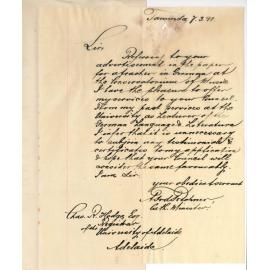 Tanunda 7.3.91.
Sir,
Referring to your
advertisement in the paper
for a teacher in German at
the Conservatorium of Music
I have the pleasure to offer
my services to your Council
From my past services at the
University as Lecturer of the
German Language & Literature
I infer that it is unnecessary
to subjoin any testimonials &
certificates to my application
& hope that your Council will
consider the same favourably.
I am Sir
your obedient servant
Chas. R. Hodge Esq
Registrar
of the University of Adelaide
Adelaide